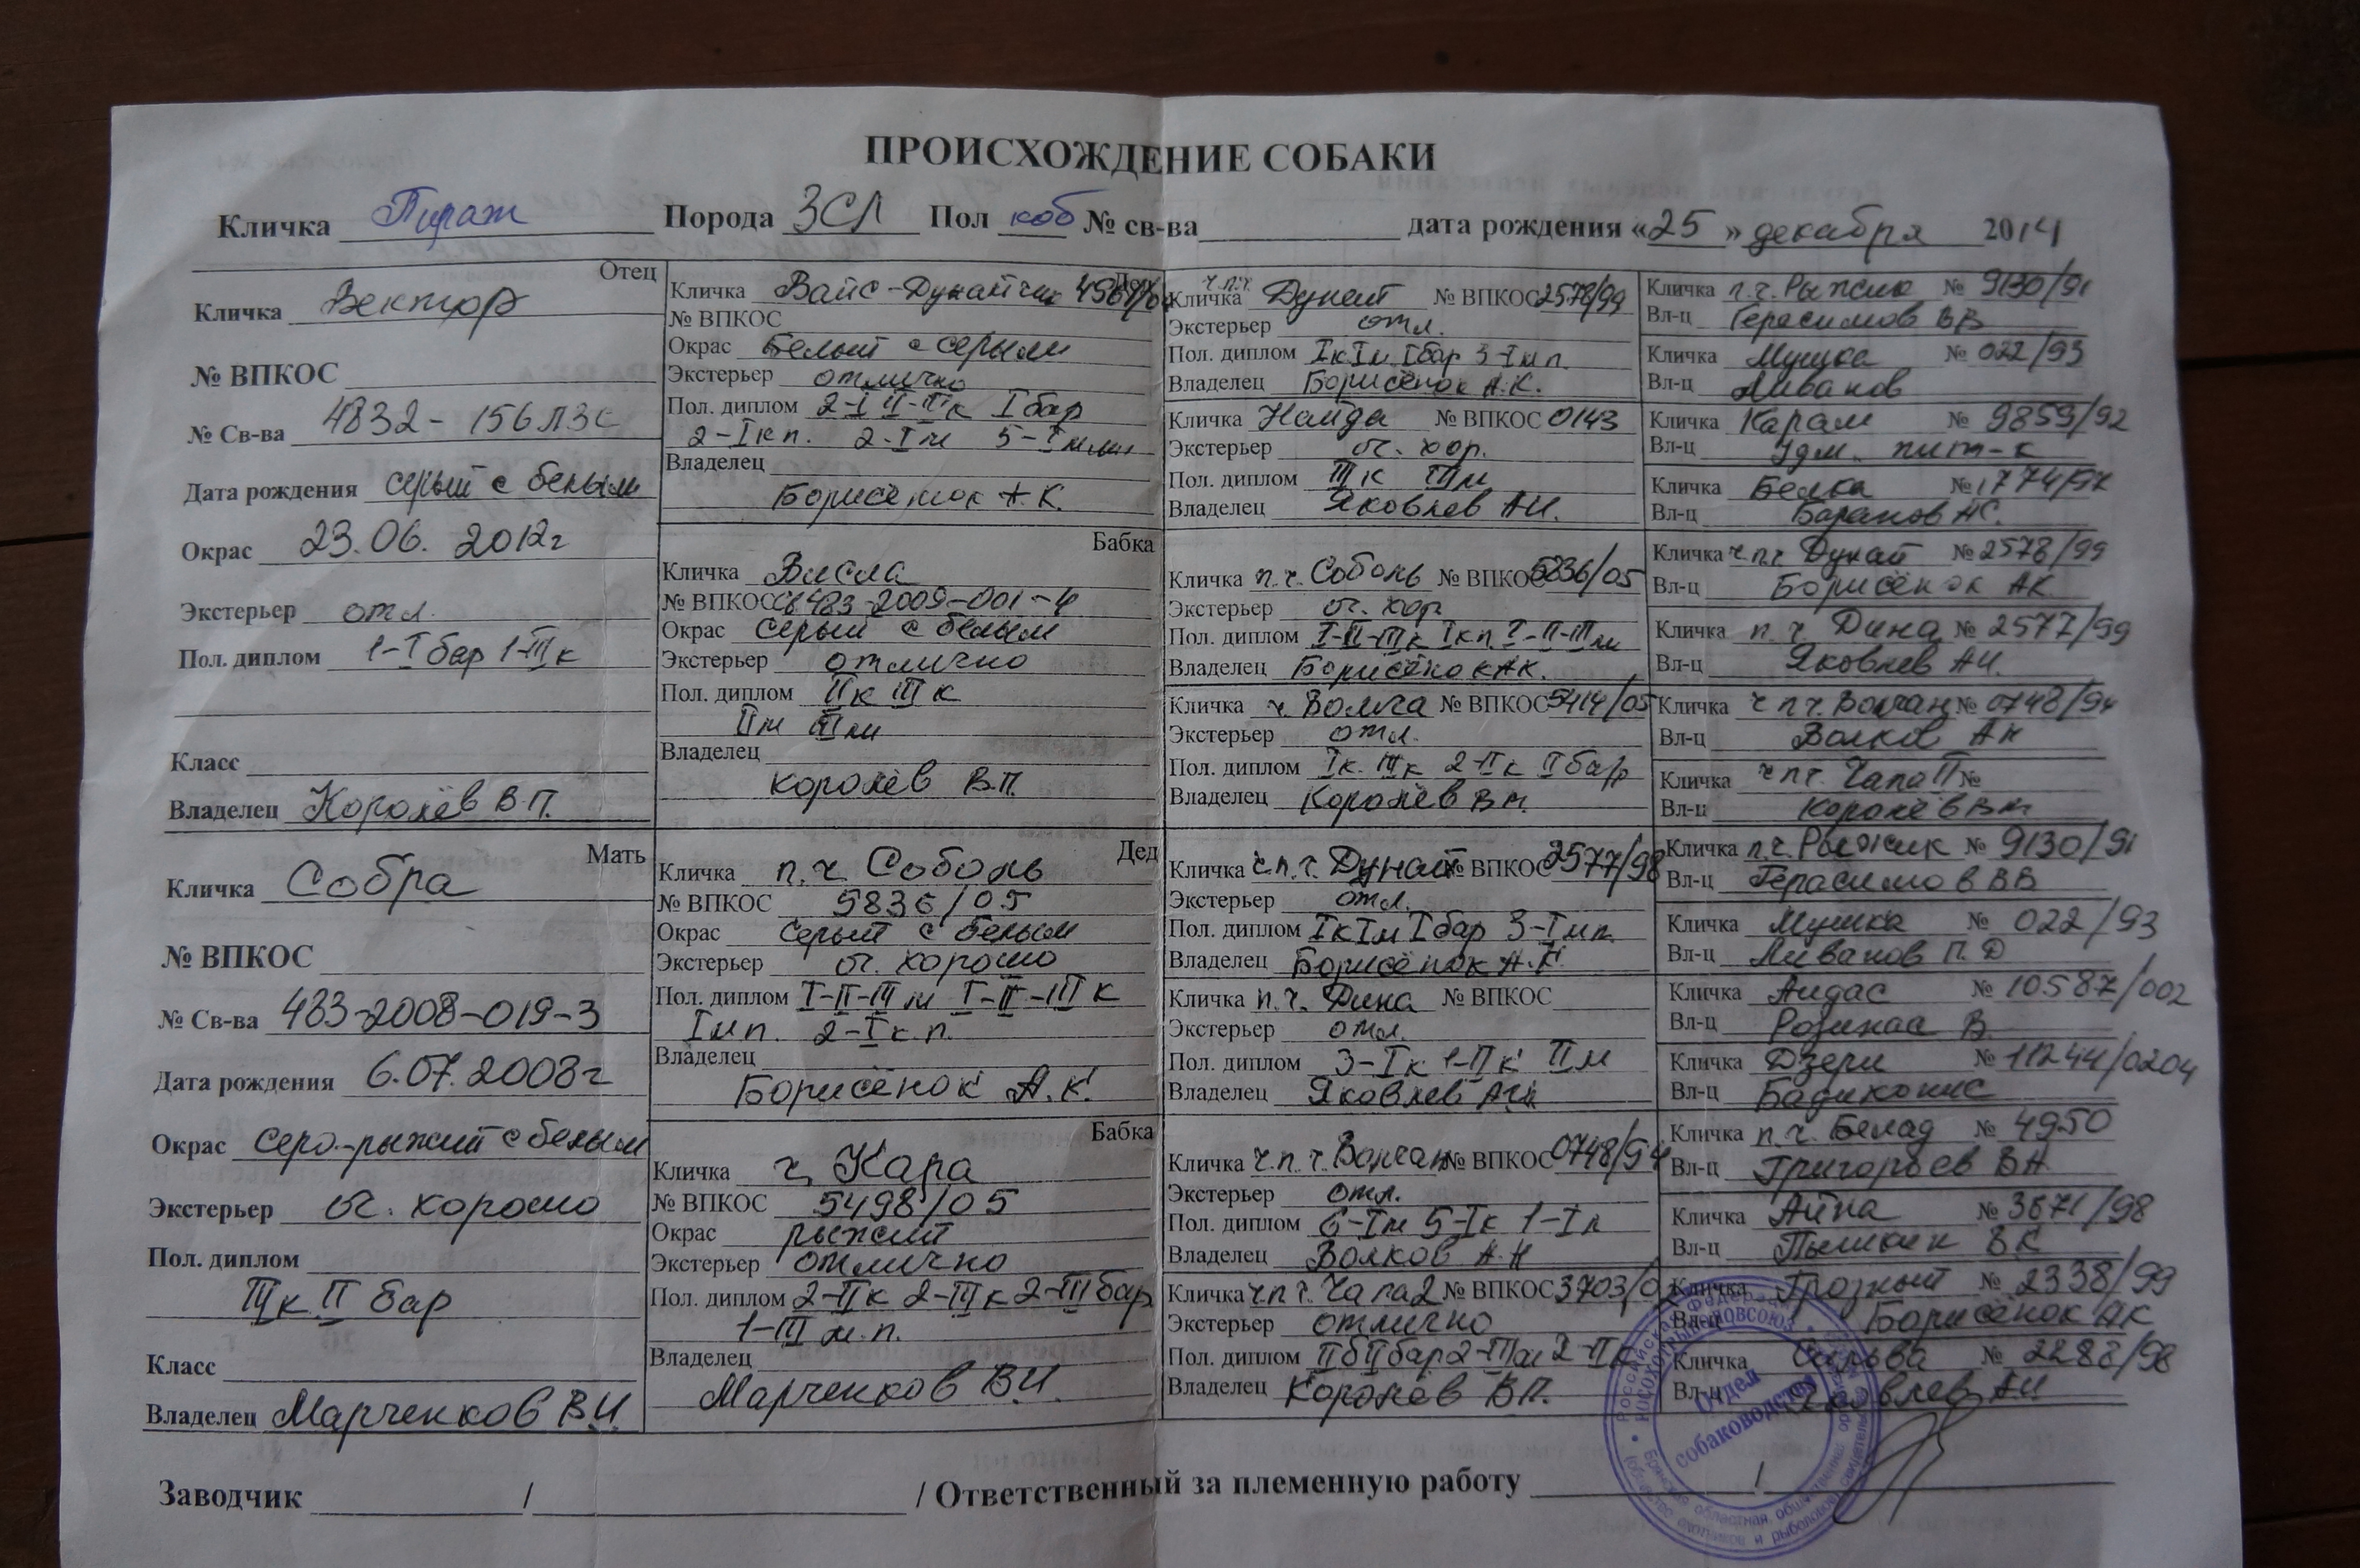 ПРОИСХОЖДЕНИЕ СОБАКИ
Кличка Пираж Порода ЗСЛ Пол коб № св-ва дата рождения «25» декабря 2014
Отец
Кличка Вектор
№ ВПКОС
№ Св-ва 4832-156ЛЗС
Дата рождения серый с белым
Окрас 23.06.2012г
Экстерьер отл.
Пол. диплом 1-I бар 1-III к
Класс
Владелец Королёв В.П.
Мать
Кличка Собра
№ ВПКОС
№ Св-ва 433-2008-019-3
Дата рождения 6.07.2008г
Окрас серо-рыжий с белым
Экстерьер оч. хорошо
Пол. диплом
III к II бар
Класс
Владелец Марченков В.И.
Дед
Кличка Вайс-Дунайчик
№ ВПКОС
Окрас Белый с серым
Экстерьер отлично
Пол. диплом 2-I II-III к I бар
2-I к п. 2-I м
Владелец
Борисёнок А.К.
Бабка
Кличка Висла
№ ВПКОС
Окрас серый с белым
Экстерьер отлично
Пол. диплом II к III к
II м III м
Владелец
Королёв В.П.
Дед
Кличка п.ч. Соболь
№ ВПКОС 5836/05
Окрас серый с белым
Экстерьер оч. хорошо
Пол. диплом I-II-III м I-II-III к
I м п. 2-I к.п.
Владелец
Борисёнок А.К.
Бабка
Кличка ч. Кара
№ ВПКОС 5498/05
Окрас рыжий
Экстерьер отлично
Пол. диплом 2-II к 2-III к 2-III бар
1-III м.п.
Владелец
Марченков В.И.
ч.п.ч.
Кличка Дунай № ВПКОС 2578/99
Экстерьер отл.
Пол. диплом I к I м I бар 3-I м п.
Владелец Борисёнок А.К.
Кличка Найда № ВПКОС 0143
Экстерьер оч. хор.
Пол. диплом III к III м
Владелец Яковлев А.И.
Кличка п.ч. Соболь № ВПКОС 5836/05
Экстерьер оч. хор
Пол. диплом I-II-III к I к п. I-II-III м
Владелец Борисёнок А.К.
Кличка ч. Волга № ВПКОС 5414/05
Экстерьер отл.
Пол. диплом I к. III к 2-II к II бар
Владелец Королёв В.П.
Кличка ч.п.ч. Дунай № ВПКОС 2577/98
Экстерьер отл.
Пол. диплом I к I м I бар 3-I м п.
Владелец Борисёнок А.К.
Кличка п.ч. Дина № ВПКОС
Экстерьер отл.
Пол. диплом 3-I к 1-II к II м
Владелец Яковлев А.И.
Кличка ч.п.ч. Волчан № ВПКОС 0748/94
Экстерьер отл.
Пол. диплом 6-I м 5-I к 1-I п
Владелец Волков А.Н
Кличка ч.п.ч. Чапа 2 № ВПКОС 3703/0
Экстерьер отлично
Пол. диплом II б II бар 2-III м 2-II к
Владелец Королёв В.П.
Кличка п.ч. Рыжик № 9130/91
Вл-ц Герасимов В В
Кличка Мушка № 022/93
Вл-ц Ливанов
Кличка Карам № 9859/92
Вл-ц Удм. пит-к
Кличка Белка № 1774/97
Вл-ц Баранов
Кличка ч.п.ч Дунай № 2578/99
Вл-ц Борисёнок АК.
Кличка п.ч. Дина № 2577/99
Вл-ц Яковлев А.И.
Кличка ч п ч. Волчан № 0748/94
Вл-ц Волков А Н
Кличка ч п ч. Чапа II №
Вл-ц Королёв В П
Кличка п.ч. Рыжик № 9130/91
Вл-ц Герасимов В В
Кличка Мушка № 022/93
Вл-ц Ливанов П. Д
Кличка Аидас № 10587/002
Вл-ц В.
Кличка Дзери № 11244/0204
Вл-ц
Кличка п.ч. Белад № 4950
Вл-ц Григорьев В А
Кличка Айна № 3671/98
Вл-ц Пышкин В К
Кличка Грозный № 2338/99
Вл-ц Борисёнок АК
Кличка Сильва № 2288/98
Вл-ц Яковлев А И
Заводчик / / Ответственный за племенную работу /
Отдел
собаководства